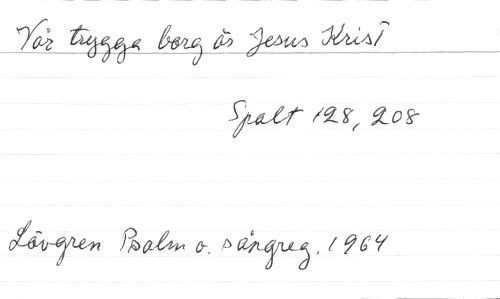 Vår trygga borg är Jesus Krist
Spalt 128, 208
Lövgren Psalm o. sångreg. 1964